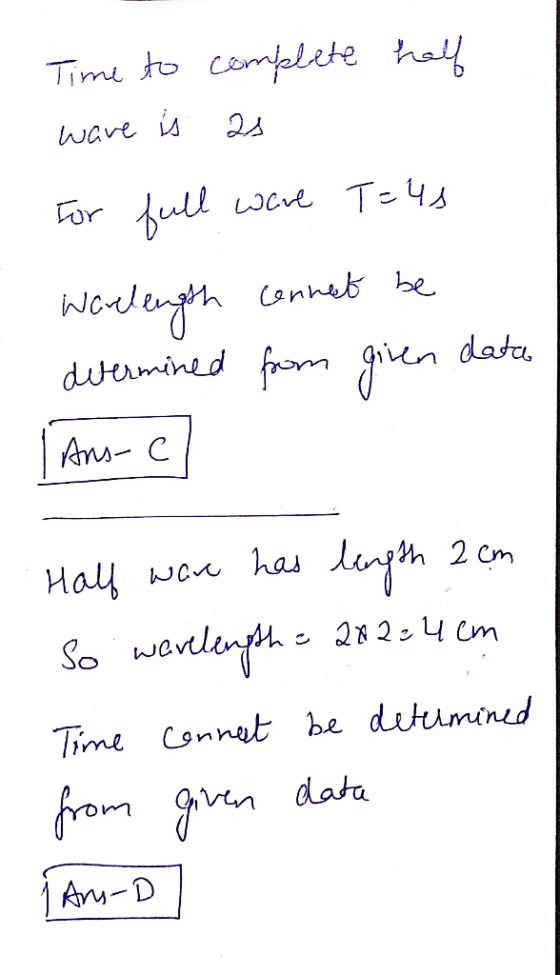 Time to complete half
wave is 2s
For full wave T=4s
Wavelength cannot be
determined from given data
Ans- C
Half wave has length 2 cm
So wavelength = 2*2=4 cm
Time cannot be determined
from given data
Ans-D